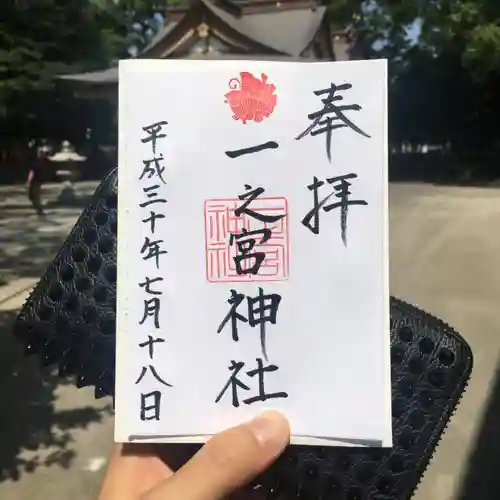 奉拝
一之宮神社
平成三十年七月十八日